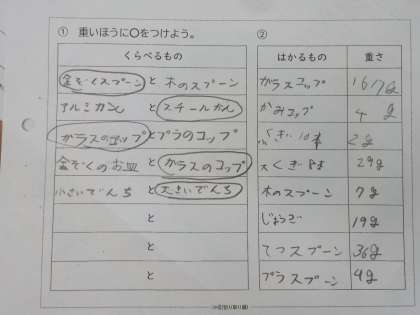 ① 重いほうに〇をつけよう。
くらべるもの
金ぞくスプーン と 木のスプーン
アルミカン と スチールかん
ガラスのコップ と プラのコップ
金ぞくのお皿 と ガラスのコップ
小さいでんち と 大きいでんち
と
と
と
②
はかるもの 重さ
ガラスコップ 167g
かみコップ 4g
くぎ 10本 2g
大くぎ 8本 29g
木のスプーン 7g
じょうぎ 19g
てつスプーン 36g
プラスプーン 4g